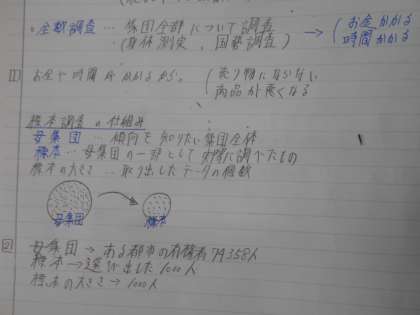 ・全数調査… 集団全部について調査
(身体測定、国勢調査) → (お金かかる
時間かかる
お金や時間がかかるから。 (売り物にならない
商品が悪くなる
標本調査の仕組み
母集団 … 傾向を知りたい集団全体
標本 … 母集団の一部として実際に調べたもの
標本の大きさ … 取り出したデータの個数
母集団 標本
母集団 → ある都市の有権者 79358人
標本 → 選び出した1000人
標本の大きさ → 1000人